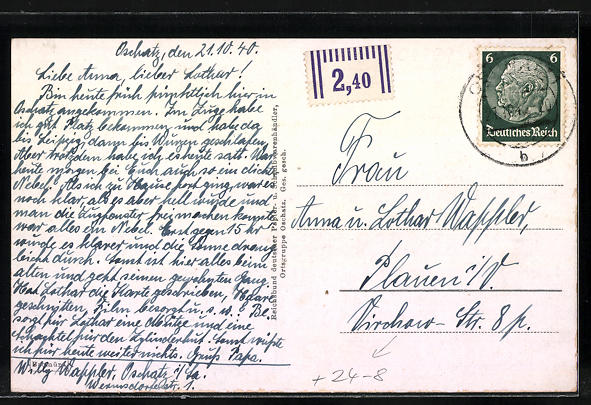 Oschatz, den 21.10.40.
Liebe Anna, lieber Lothar!
Bin heute früh pünktlich hier in
Oschatz angekommen. Im Zuge habe
ich gut Platz bekommen und habe da
bis Leipzig, dann bis Wurzen geschlafen.
Aber trotzdem habe ich es heute satt. War
heute morgen bei Euch auch so ein dichter
Nebel? Als ich zu Hause fort ging war es
noch klar, als es aber hell wurde und
man die Zugfenster frei machen konnte
war alles ein Nebel. Erst gegen 15 hr
wurde es klarer und die Sonne drang
leicht durch. Sonst ist hier alles beim
alten und geht seinen gewohnten Gang.
Hat Lothar die Karte geschrieben, Haare
geschnitten, Film besorgt u. s. w.? Be-
sorgt für Lothar eine Mütze und eine
Schachtel für den Zylinderhut. Sonst wüßte
ich für heute weiter nichts. Gruß Papa.
Willy Wappler, Oschatz i/Sa.
Wermsdorferstr. 1.
Reichsbund deutscher Papier- u. Schreibwarenhändler,
Ortsgruppe Oschatz. Ges. gesch.
2,40
6 6
Deutsches Reich
b
Frau
Anna u. Lothar Wappler,
Plauen i/V.
Virchow-Str. 8 p.
+24-8